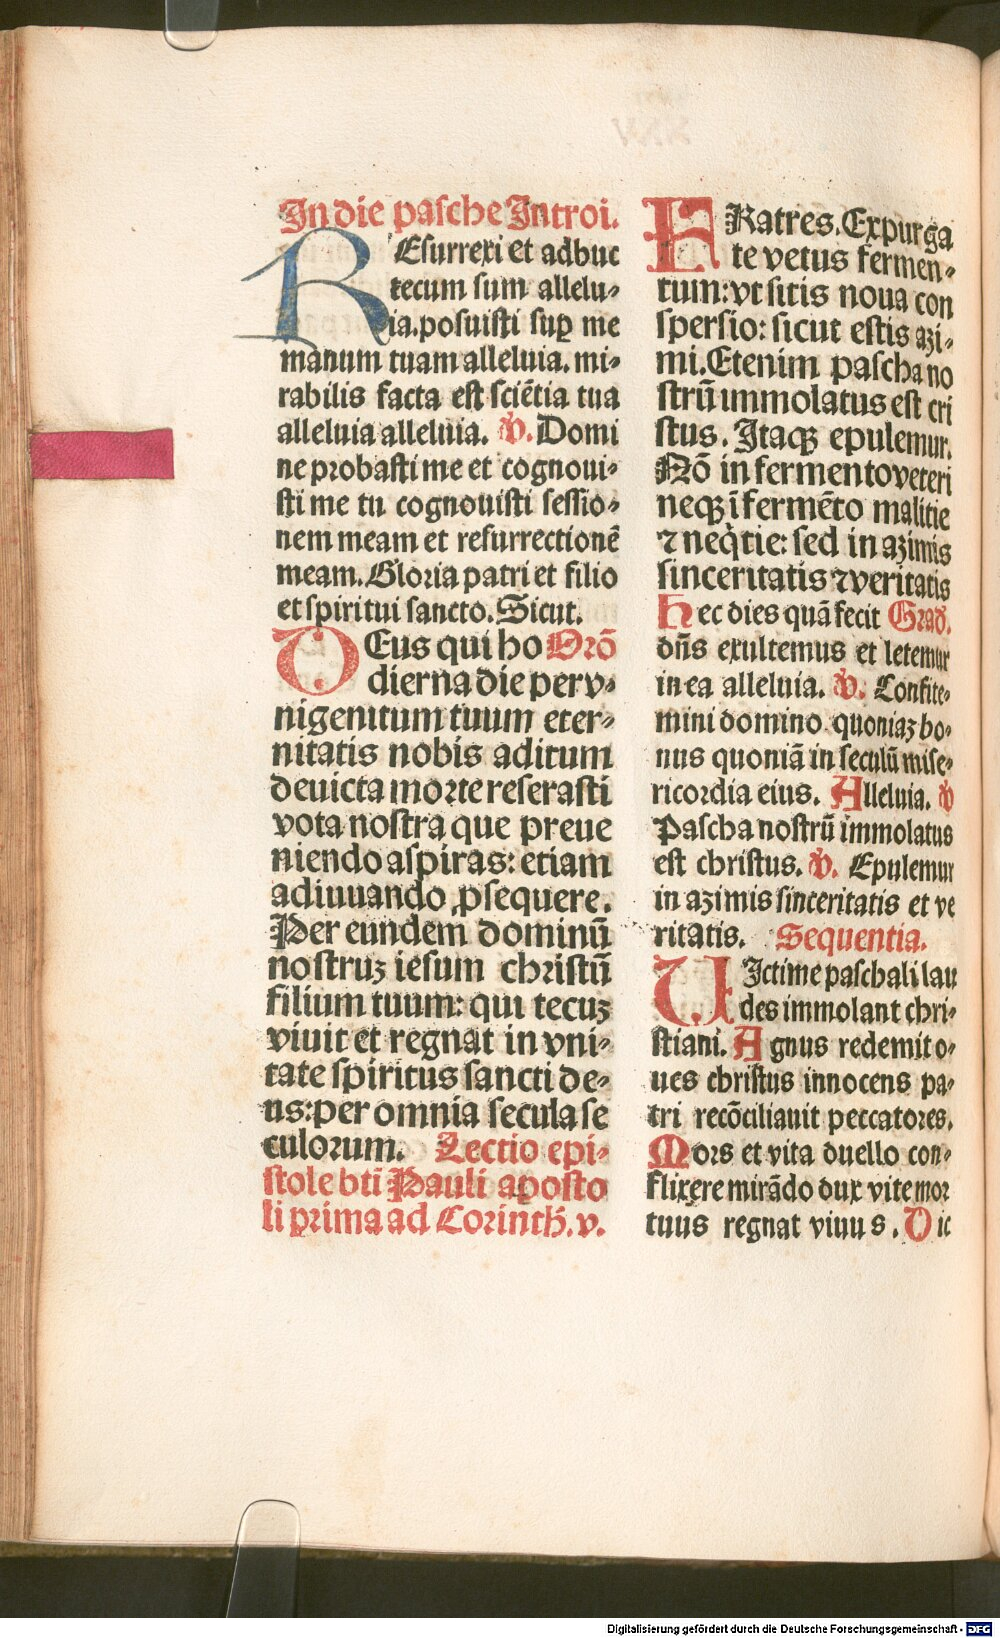 In die pasche Introi.
REsurrexi et adhuc
tecum sum allelu⸗
ia. posuisti suꝑ me
manum tuam alleluia. mi⸗
rabilis facta est sciētia tua
alleluia alleluia. ℣. Domi
ne probasti me et cognoui⸗
sti me tu cognouisti sessio⸗
nem meam et resurrectionē
meam. Gloria patri et filio
et spiritui sancto. Sicut.
DEus qui ho Orō
dierna die per v⸗
nigenitum tuum eter⸗
nitatis nobis aditum
deuicta morte reserasti
vota nostra que preue
niendo aspiras: etiam
adiuuando ꝓsequere.
Per eundem dominū
nostruꝫ iesum christū
filium tuum: qui tecuꝫ
viuit et regnat in vni⸗
tate spiritus sancti de⸗
us: per omnia secula se
culorum. Lectio epi⸗
stole bti Pauli aposto
li prima ad Corinth. v.
FRatres. Expurga
te vetus fermen⸗
tum: vt sitis noua con
spersio: sicut estis azi⸗
mi. Etenim pascha no
strū immolatus est cri
stus. Itaqꝫ epulemur.
Nō in fermento veteri
neqꝫ ī fermēto malitie
⁊ neq̇tie: sed in azimis
sinceritatis ⁊ veritatis
Hec dies quā fecit Grad.
dn̄s exultemus et letemur
in ea alleluia. ℣. Confite⸗
mini domino quoniaꝫ bo⸗
nus quoniā in seculū mise⸗
ricordia eius. Alleluia. ℣
Pascha nostrū immolatus
est christus. ℣. Epulemur
in azimis sinceritatis et ve
ritatis. Sequentia.
VIctime paschali lau
des immolant chri⸗
stiani. Agnus redemit o⸗
ues christus innocens pa⸗
tri recōciliauit peccatores.
Mors et vita duello con⸗
flixere mirādo dux vite mor
tuus regnat viuus. Dic
Digitalisierung gefördert durch die Deutsche Forschungsgemeinschaft - DFG